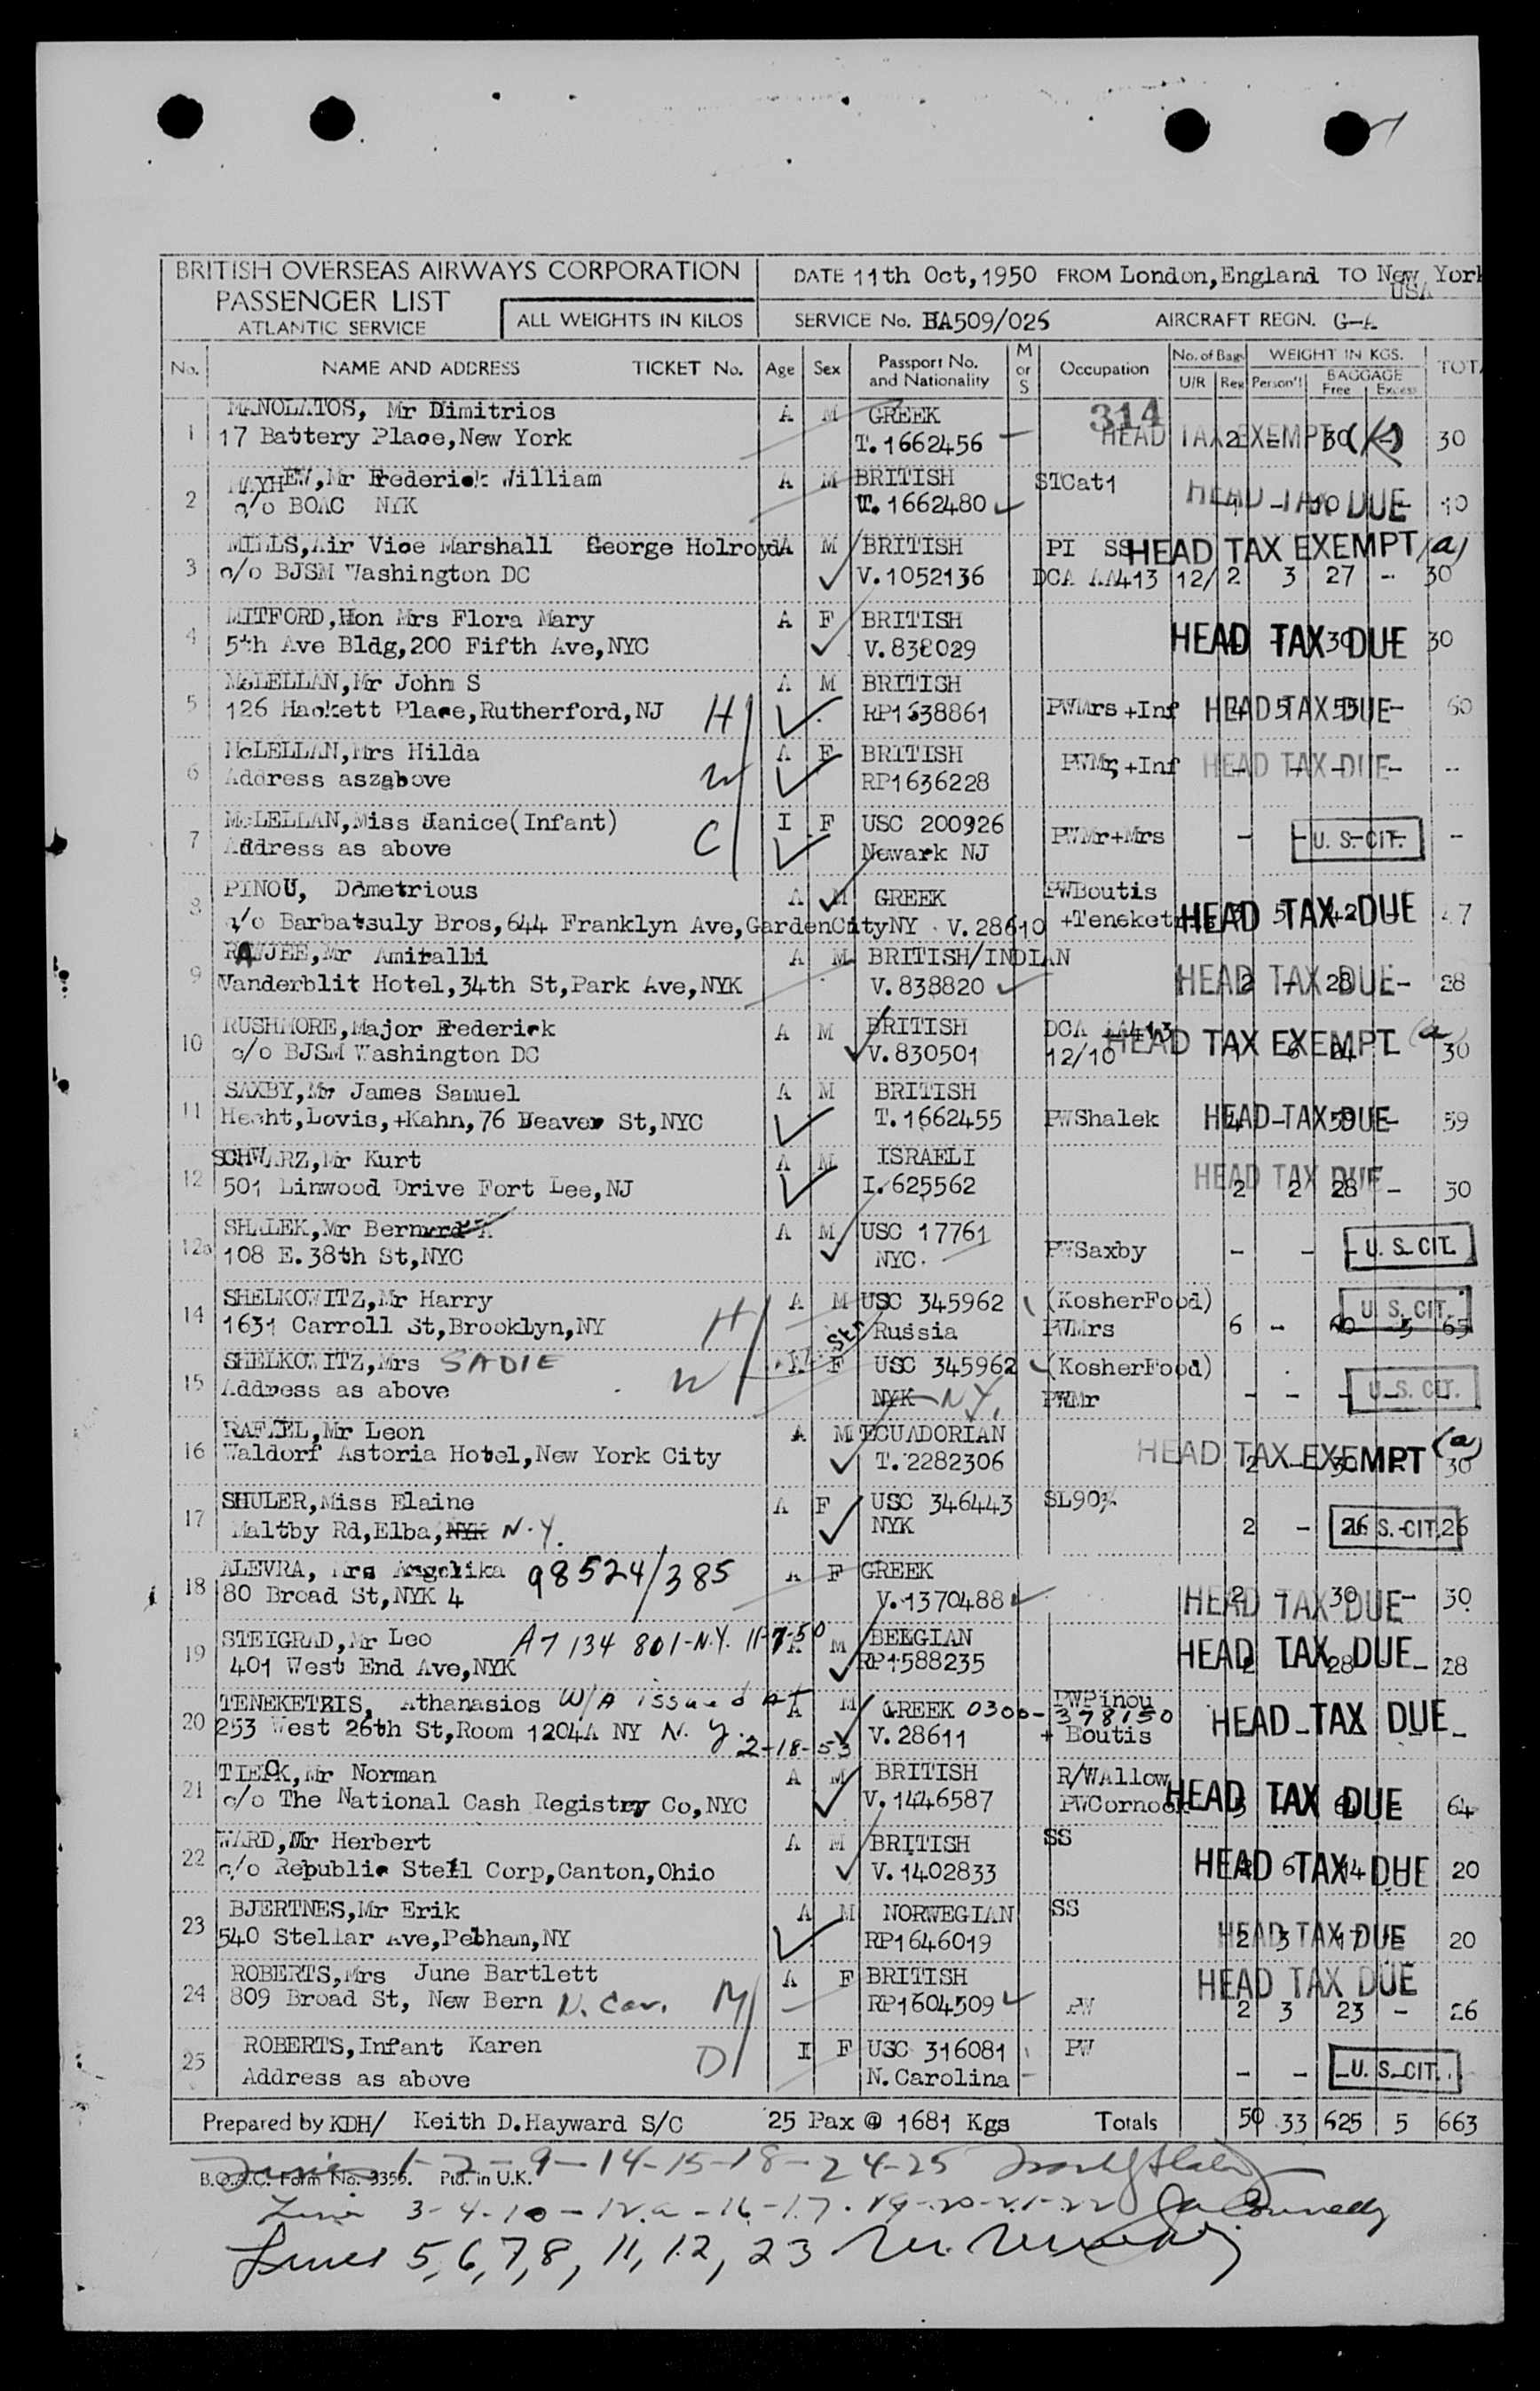 BRITISH OVERSEAS AIRWAYS CORPORATION
PASSENGER LIST
ATLANTIC SERVICE
ALL WEIGHTS IN KILOS
DATE 11th Oct,1950 FROM London,England TO New York
USA
SERVICE No. BA509/025 AIRCRAFT REGN. G-A
No. NAME AND ADDRESS TICKET No. Age Sex Passport No. and Nationality M or S Occupation No. of Bags U/R Reg WEIGHT IN KGS. Person'l BAGGAGE Free Excess TOTA
314
MANOLATOS, Mr Dimitrios A M GREEK
1 17 Battery Place,New York T.1662456 HEAD TAX EXEMPT 2 - 30 30
MAYHEW,Mr Frederick William A M BRITISH STCat1
2 c/o BOAC NYK 1662480 HEAD TAX DUE 1 - 10 - 10
MILLS,Air Vice Marshall George Holroyd A M BRITISH PI SS HEAD TAX EXEMPT (a)
3 c/o BJSM Washington DC V.1052136 DCA AA413 12/ 2 3 27 - 30
MITFORD,Hon Mrs Flora Mary A F BRITISH
4 5th Ave Bldg,200 Fifth Ave,NYC V.838029 HEAD TAX DUE 30 30
McLELLAN,Mr John S A M BRITISH
5 126 Hackett Place,Rutherford,NJ H RP1638861 PWMrs +Inf HEAD TAX DUE 5 55 - 60
McLELLAN,Mrs Hilda A F BRITISH
6 Address aszabove W RP1636228 PWMr +Inf HEAD TAX DUE - - - - --
McLELLAN,Miss Janice(Infant) I F USC 200926
7 Address as above C Newark NJ PWMr+Mrs - - U. S. CIT. -
PINOU, Dametrious A M GREEK PWBoutis
8 c/o Barbatsuly Bros,644 Franklyn Ave,GardenCityNY V.28610 HEAD TAX DUE 5 42 47
RAWJEE,Mr Amiralli A M BRITISH/INDIAN
9 Vanderblit Hotel,34th St,Park Ave,NYK V.838820 HEAD TAX DUE 2 - 28 - 28
RUSHMORE,Major Frederick A M BRITISH DCA AA413
10 c/o BJSM Washington DC V.830501 12/10 HEAD TAX EXEMPT (a) 1 6 24 - 30
SAXBY,Mr James Samuel A M BRITISH
11 Hecht,Lovis,+Kahn,76 Beaver St,NYC T.1662455 PWShalek HEAD TAX DUE 4 - 59 - 59
SCHWARZ,Mr Kurt A M ISRAELI
12 501 Linwood Drive Fort Lee,NJ I.625562 HEAD TAX DUE 2 2 28 - 30
SHALEK,Mr Bernard A M USC 17761
12a 108 E.38th St,NYC NYC. PWSaxby - - - U. S. CIT.
SHELKOWITZ,Mr Harry A M USC 345962 (KosherFood)
14 1631 Carroll St,Brooklyn,NY H Russia PWMrs 6 - 60 5 65 U. S. CIT.
SHELKOWITZ,Mrs SADIE F USC 345962 (KosherFood)
15 Address as above W NYK N.Y. PWMr - - - U. S. CIT.
RAFAEL,Mr Leon A M ECUADORIAN
16 Waldorf Astoria Hotel,New York City T.2282306 HEAD TAX EXEMPT (a) 2 - 30 - 30
SHULER,Miss Elaine A F USC 346443 SL90%
17 Maltby Rd,Elba,NYK N.Y. NYK 2 - 26 U. S. CIT. 26
ALEVRA, Mrs Angelika 98524/385 A F GREEK
18 80 Broad St,NYK 4 V.1370488 HEAD TAX DUE 2 - 30 - 30
STEIGRAD,Mr Leo A7 134 801-N.Y. 11-7-50 A M BELGIAN
19 401 West End Ave,NYK RP1588235 HEAD TAX DUE 2 - 28 - 28
TENEKETRIS, Athanasios W/A issued at A M GREEK 0300-378150 PWPinou
20 253 West 26th St,Room 1204A NY N.Y. 2-18-53 V.28611 + Boutis HEAD TAX DUE
TIEFOK,Mr Norman A M BRITISH R/WAllow
21 c/o The National Cash Registry Co,NYC V.1446587 PWCornock HEAD TAX DUE 64
WARD,Mr Herbert A M BRITISH SS
22 c/o Republic Stell Corp,Canton,Ohio V.1402833 HEAD TAX DUE 2 6 14 - 20
BJERTNES,Mr Erik A M NORWEGIAN SS
23 540 Stellar Ave,Pelham,NY RP1646019 HEAD TAX DUE 2 3 17 - 20
ROBERTS,Mrs June Bartlett A F BRITISH HEAD TAX DUE
24 809 Broad St, New Bern N. Car. M RP1604509 PW 2 3 23 - 26
ROBERTS,Infant Karen I F USC 316081 PW
25 Address as above D N.Carolina - - U. S. CIT.
Prepared by KDH/ Keith D.Hayward S/C 25 Pax @ 1681 Kgs Totals 50 33 625 5 663
B.O.A.C. Form No. 3356. Ptd. in U.K.
1-2-9-14-15-18-24-25
Line 3-4-10-12.a-16-17-19-20-21-22
Lines 5,6,7,8,11,12,23